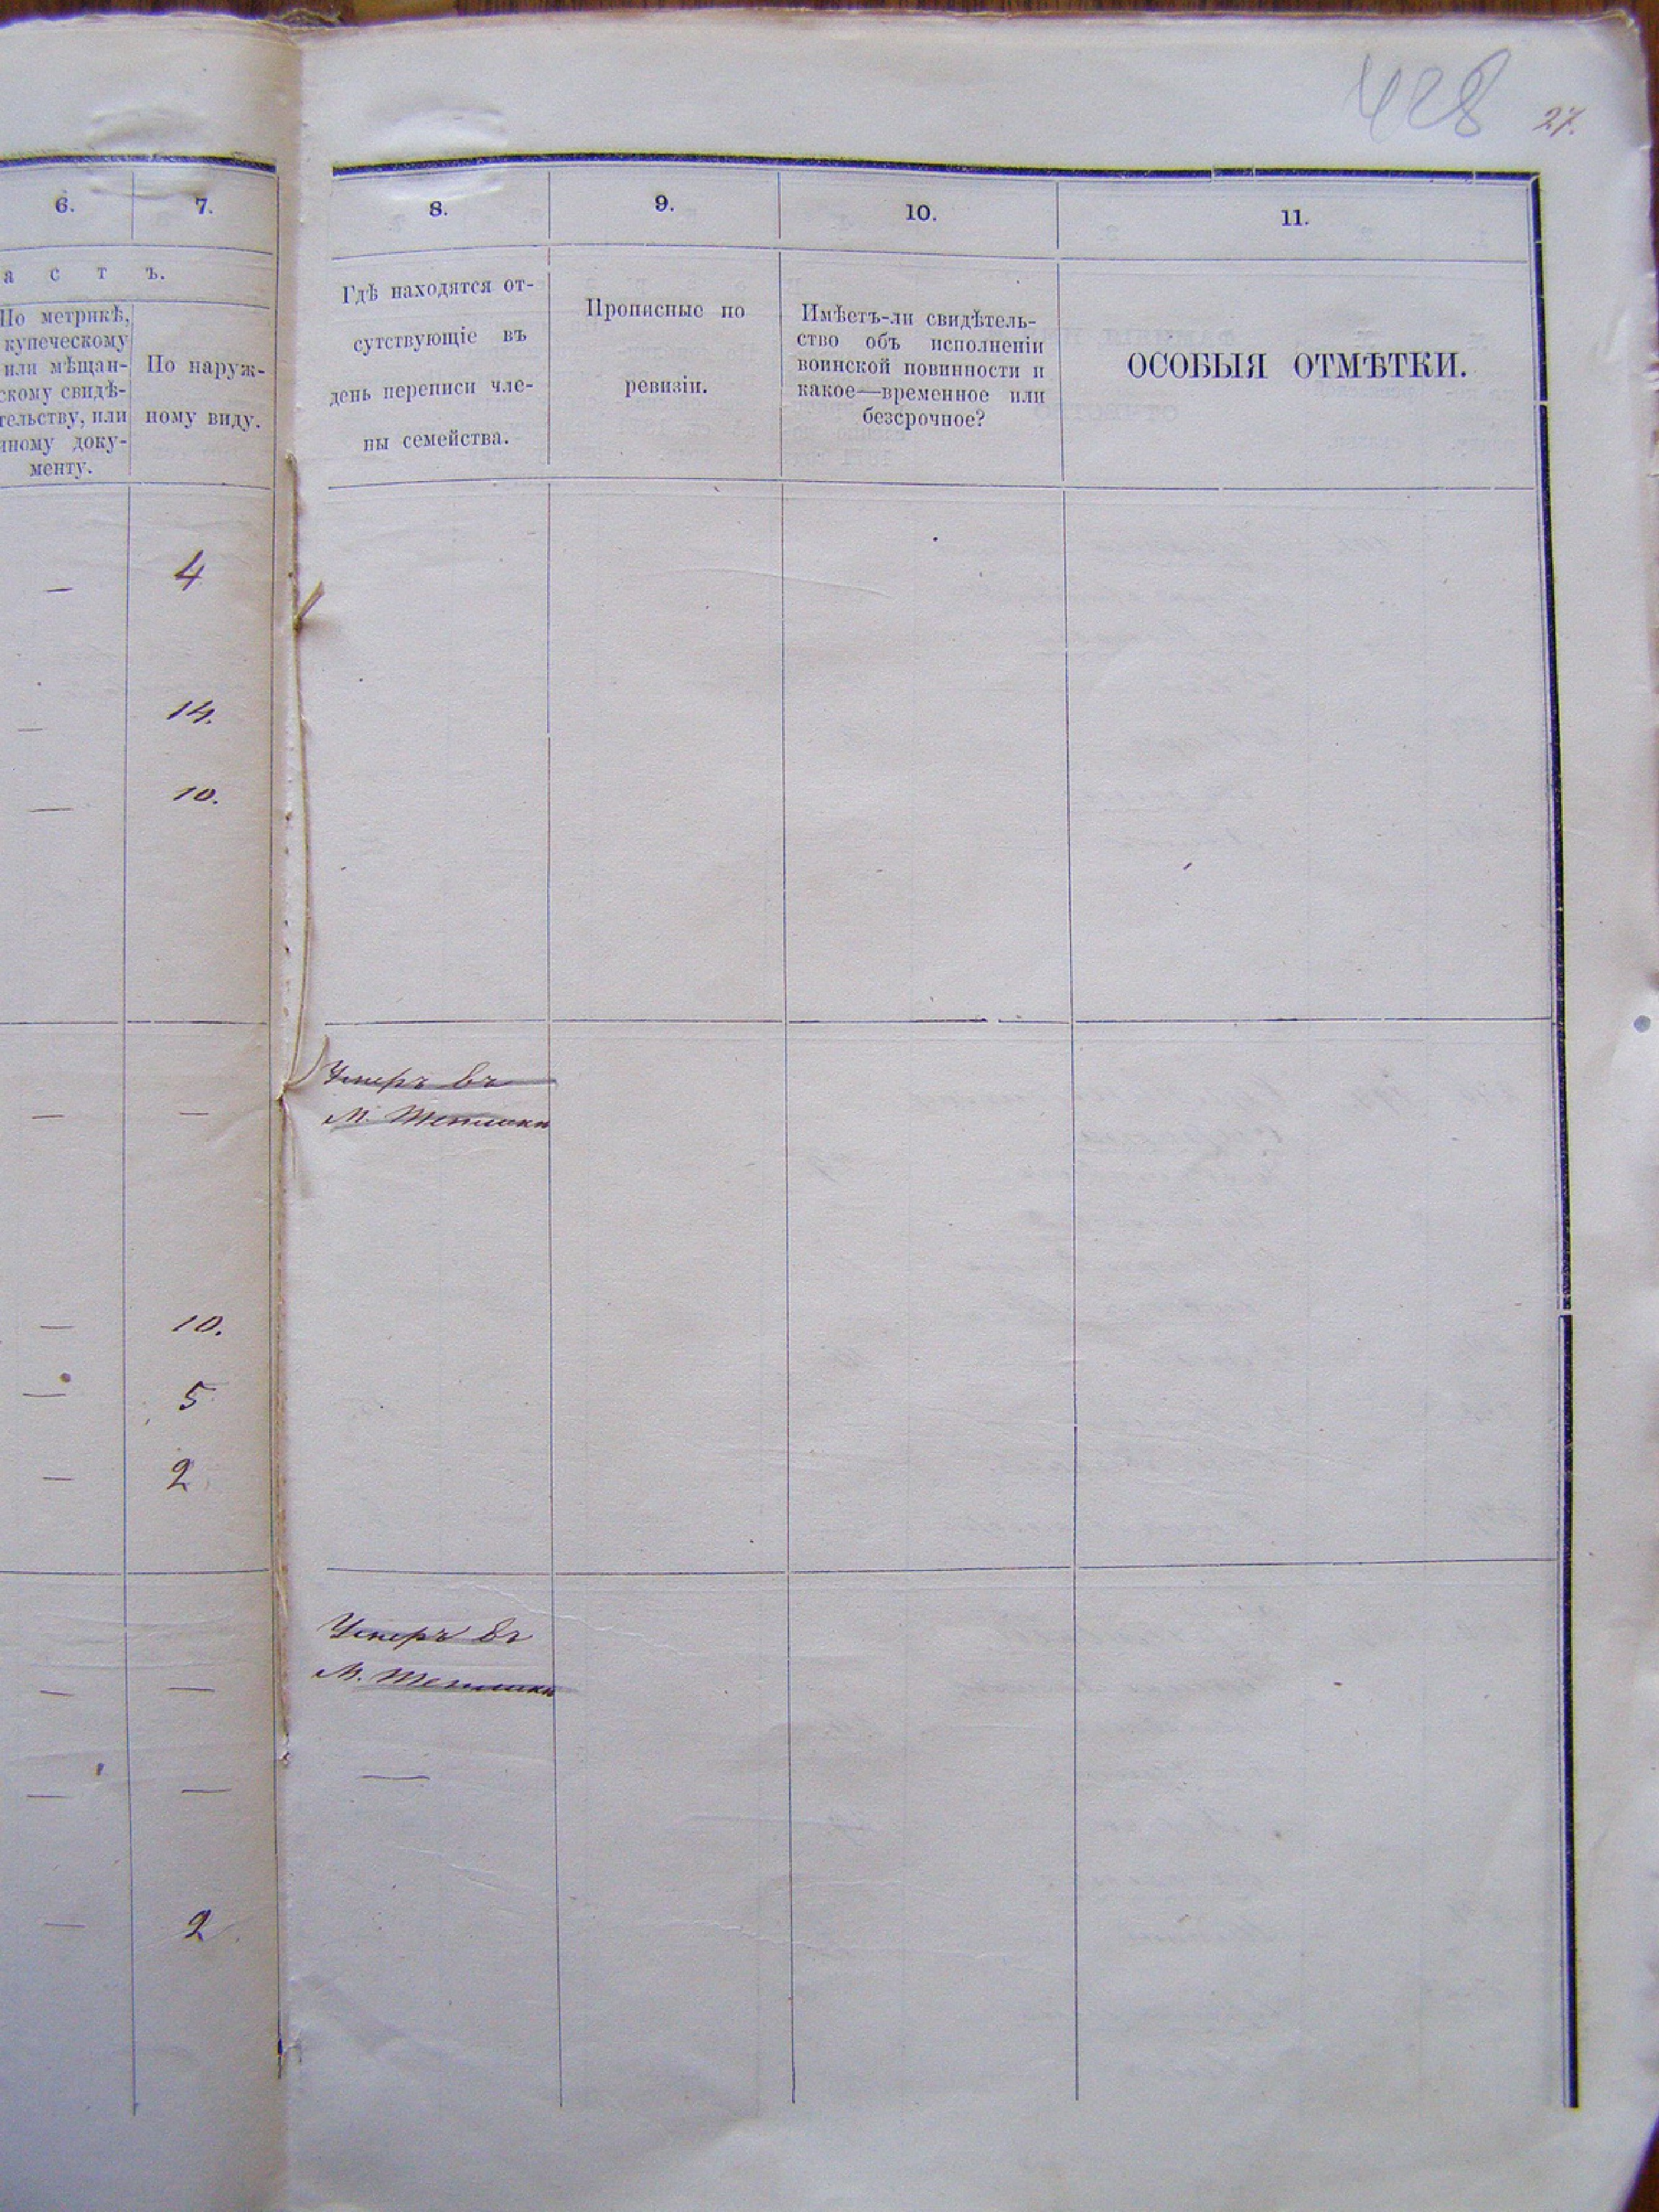 428 27.
6. 7. 8. 9. 10. 11.
а с т ъ.
По метрикѣ,
купеческому
или мѣщан-
скому свидѣ-
тельству, или
иному доку-
менту.
По наруж-
ному виду.
Гдѣ находятся от-
сутствующіе въ
день переписи чле-
ны семейства.
Прописные по
ревизіи.
Имѣетъ-ли свидѣтель-
ство объ исполненіи
воинской повинности и
какое—временное или
безсрочное?
ОСОБЫЯ ОТМѢТКИ.
— 4
— 14.
— 10.
— —
Умеръ въ
М.
— 10.
— 5
— 2
Умеръ въ
М.
— —
— — —
— 2